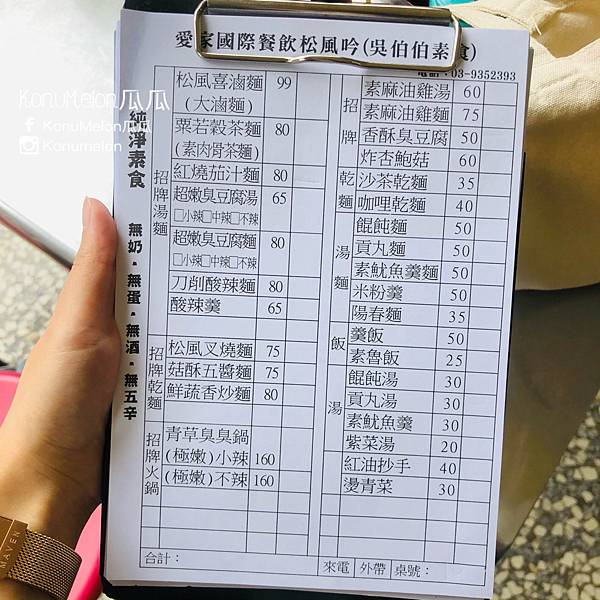 愛家國際餐飲松風吟(吳伯伯素食)
電話:03-9352393
KonuMelon瓜瓜
KonuMelon瓜瓜
Konumelon
純淨素食 無奶.無蛋.無酒.無五辛
招牌湯麵
松風喜滷麵 99
(大滷麵)
粟若穀茶麵 80
(素肉骨茶麵)
紅燒茄汁麵 80
超嫩臭豆腐湯 65
□小辣□中辣□不辣
超嫩臭豆腐麵 80
□小辣□中辣□不辣
刀削酸辣麵 80
酸辣羹 65
招牌乾麵
松風叉燒麵 75
菇酥五醬麵 75
鮮蔬香炒麵 80
招牌火鍋
青草臭臭鍋
(極嫩)小辣 160
(極嫩)不辣 160
合計:
招牌
素麻油雞湯 60
素麻油雞麵 75
香酥臭豆腐 50
炸杏鮑菇 60
乾麵
沙茶乾麵 35
咖哩乾麵 40
湯麵
餛飩麵 50
貢丸麵 50
素魷魚羹麵 50
米粉羹 50
陽春麵 35
飯
羹飯 50
素魯飯 25
湯
餛飩湯 30
貢丸湯 30
素魷魚羹 30
紫菜湯 20
紅油抄手 40
燙青菜 30
來電 外帶 桌號:
MAVEN